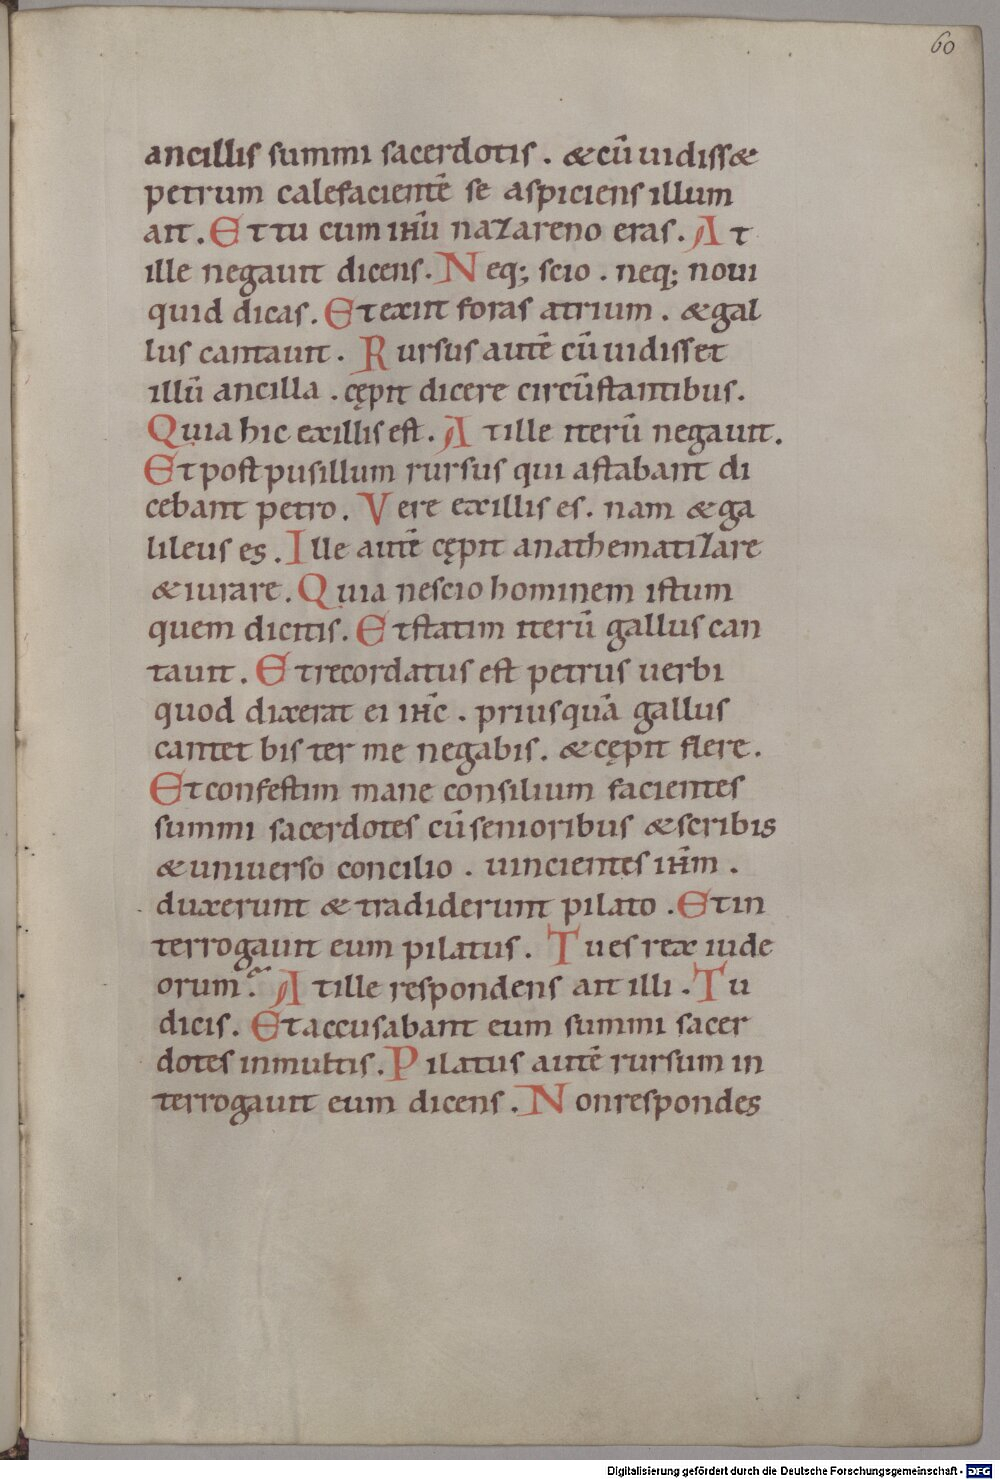 60
ancillis summi sacerdotis . &cū uidiss&
petrum calefacientē se aspiciens illum
ait . Et tu cum ihū nazareno eras . At
ille negauit dicens . Neq; scio . neq; noui
quid dicas . Et exiit foras atrium . & gal
lus cantauit . Rursus autē cū uidisset
illū ancilla . cępit dicere circūstantibus .
Quia hic exillis est . At ille iterū negauit .
Et post pusillum rursus qui astabant di
cebant petro . Vere exillis es . nam & ga
lileus es . Ille autē cępit anathematizare
& iurare . Quia nescio hominem istum
quem dicitis . Et statim iterū gallus can
tauit . Et recordatus est petrus uerbi
quod dixerat ei ihc̄ . priusquā gallus
cantet bis ter me negabis . & cępit flere .
Et confestim mane consilium facientes
summi sacerdotes cū senioribus & scribis
& uniuerso concilio . uincientes ihm̄ .
duxerunt & tradiderunt pilato . Et in
terrogauit eum pilatus . Tu es rex iude
orum ? At ille respondens ait illi . Tu
dicis . Et accusabant eum summi sacer
dotes inmultis . Pilatus autē rursum in
terrogauit eum dicens . Non respondes
Digitalisierung gefördert durch die Deutsche Forschungsgemeinschaft - DFG